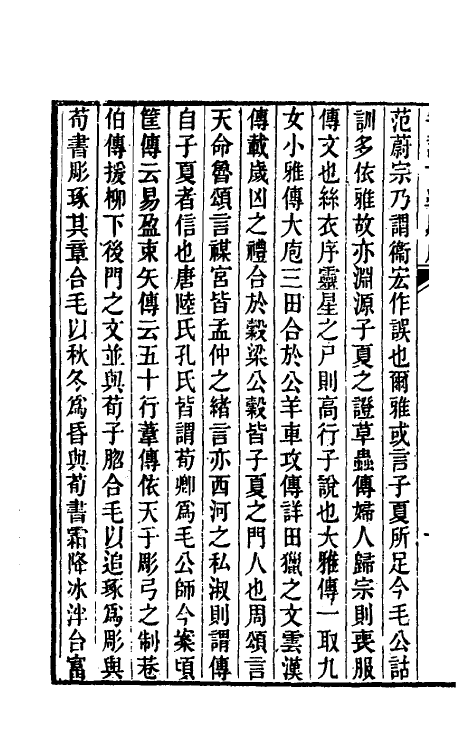 范蔚宗乃謂衞宏作誤也爾雅或言子夏所足今毛公詁
訓多依雅故亦淵源子夏之證草蟲傳婦人歸宗則喪服
傳文也絲衣序靈星之尸則高行子說也大雅傳一取九
女小雅傳大庖三田合於公羊車攻傳詳田獵之文雲漢
傳載歲凶之禮合於穀梁公穀皆子夏之門人也周頌言
天命魯頌言禖宮皆孟仲之緒言亦西河之私淑則謂傳
自子夏者信也唐陸氏孔氏皆謂荀卿爲毛公師今案頃
筐傳云易盈束矢傳云五十行葦傳依天子彫弓之制巷
伯傳援柳下後門之文並與荀子脗合毛以追琢爲彫與
荀書彫琢其章合毛以秋冬爲昏與荀書霜降冰泮合富